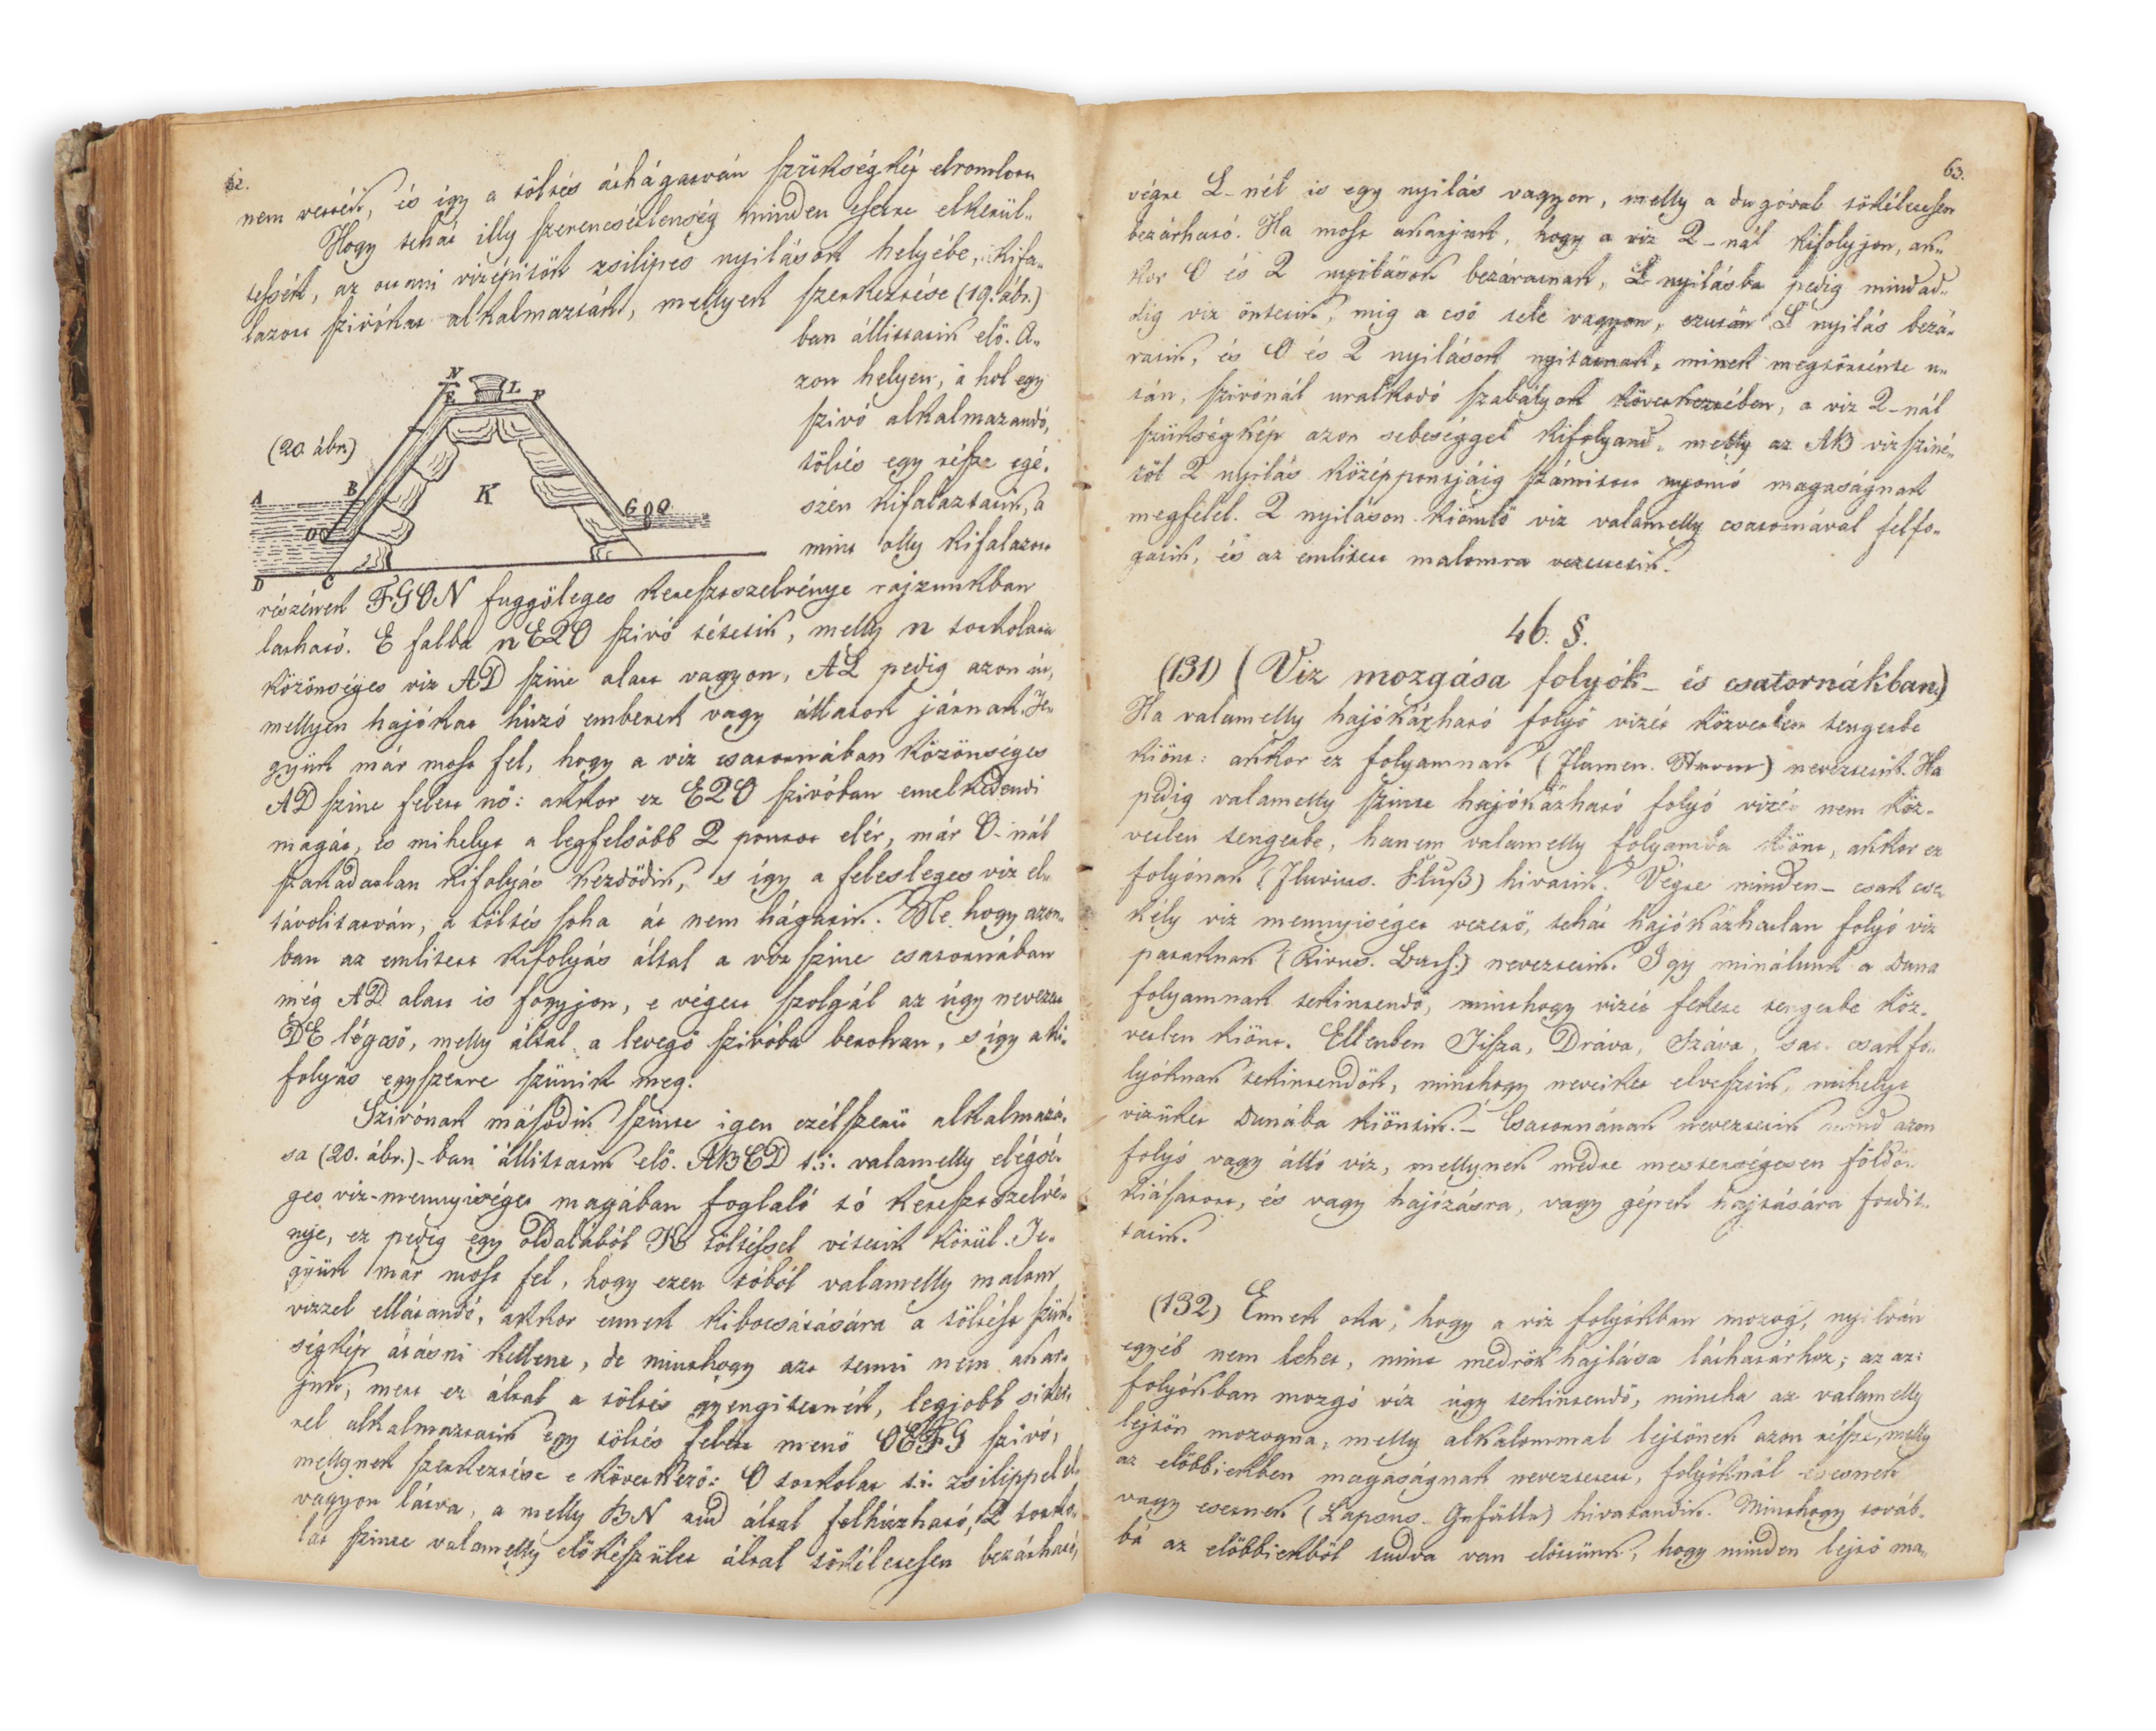 62.
nem vetetik, és így a töltés áthágatván szükségkép elromlott
Hogy tehát illy szerencsétlenség minden esetre elkerül-
tessék, az ottani vizépitők zsilipes nyilások helyébe, kifa-
lazott szivókat alkalmaztak, mellyek szerkeztése (19. ábr.)
ban állittatik elő. A-
zon helyen, a hol egy
szivó alkalmazandó,
töltés egy része egé-
szen kifalaztatik, a
mint olly kifalazott
(20. ábr.)
N
E
L
F
A
B
K
G
O
D
C
részének FGON függőleges keresztszelvénye rajzunkban
látható. E falba nEQO szivó tétetik, melly n torkolata
közönséges viz AD szine alatt vagyon, AL pedig azon út,
mellyen hajókat húzó emberek vagy állatok járnak. Te-
gyük már most fel, hogy a viz csatornában közönséges
AD szine felett nő: akkor ez EQO szivóban emelkedendi
magát, és mihelyt a legfelsőbb Q pontot elér, már O-nál
szakadatlan kifolyás kezdődik, s így a felesleges viz el-
távolitatván, a töltés soha át nem hágatik. Ne hogy azon-
ban az emlitett kifolyás által a viz szine csatornában
még AD alatt is fogyjon, e végett szolgál az úgy nevezett
DE légcső, melly által a levegő szivóba berohan, s így a ki-
folyás egyszerre szűnik meg.
Szivónak második szinte igen czélszerű alkalmazá-
sa (20. ábr.)-ban állittatik elő. ABCD t.i. valamelly elégsé-
ges viz-mennyiséget magában foglaló tó keresztszelvé-
nye, ez pedig egy oldalából K töltéssel vétetik körül. Te-
gyük már most fel, hogy ezen tóból valamelly malom
vizzel ellátandó, akkor ennek kibocsátására a töltést szük-
ségkép átásni kellene, de minthogy azt tenni nem akar-
juk, mert ez által a töltés gyengitetnék, legjobb siker-
rel alkalmaztatik egy töltés felett menő OEFG szivó,
mellynek szerkeztése e következő: O torkolat t.i. zsilippel el-
vagyon látva, a melly BN rud által felhúzható, Q torko-
lat szinte valamelly előkészület által tökéletesen bezárható,
63.
végre L-nél is egy nyilás vagyon, melly a dugóval tökéletesen
bezárható. Ha most akarjuk, hogy a viz Q-nál kifolyjon, ak-
kor O és Q nyilások bezáratnak, L nyilásba pedig mindad-
dig viz öntetik, mig a cső tele vagyon, ezután L nyilás bezá-
ratik, és O és Q nyilások nyitatnak, minek megtörténte u-
tán, szivónál uralkodó szabályok következtében, a viz Q-nál
szükségkép azon sebeséggel kifolyand, melly az AB vizsziné-
től Q nyilás középpontjáig számitott nyomó magaságnak
megfelel. Q nyiláson kiömlő viz valamelly csatornával felfo-
gatik, és az emlitett malomra vezettetik.
46. §.
(131) (Viz mozgása folyók- és csatornákban.)
Ha valamelly hajókázható folyó vizét közvetlen tengerbe
kiönt: akkor ez folyamnak (Flumen. Strom) neveztetik. Ha
pedig valamelly szinte hajókázható folyó vizét nem köz-
vetlen tengerbe, hanem valamelly folyamba kiönt, akkor ez
folyónak (Fluvius. Fluß) hivatik. Végre minden- csak cse-
kély viz mennyiséget vezető, tehát hajókázhatlan folyó viz
pataknak (Rivus. Bach.) neveztetik. Igy minálunk a Duna
folyamnak tekintendő, minthogy vizét fekete tengerbe köz-
vetlen kiönt. Ellenben Tisza, Dráva, Száva, sat. csak fo-
lyóknak tekintendők, minthogy neveiket elvesztik, mihelyt
vizüket Dunába kiöntik.- Csatornának neveztetik mind azon
folyó vagy álló viz, mellynek medre mesterségesen földön
kiásatott, és vagy hajózásra, vagy gépek hajtására fordit-
tatik.
(132) Ennek oka, hogy a viz folyókban mozog, nyilván
egyéb nem lehet, mint medrök hajlása láthatárhoz; az az:
folyókban mozgó viz úgy tekintendő, mintha az valamelly
lejtőn mozogna, melly alkalommal lejtőnek azon része, melly
az előbbiekben magaságnak neveztetett, folyóknál esésnek
vagy esetnek (Lapsus. Gefälle) hivatandik. Minthogy továb-
bá az előbbiekből tudva van előttünk, hogy minden lejtő ma-